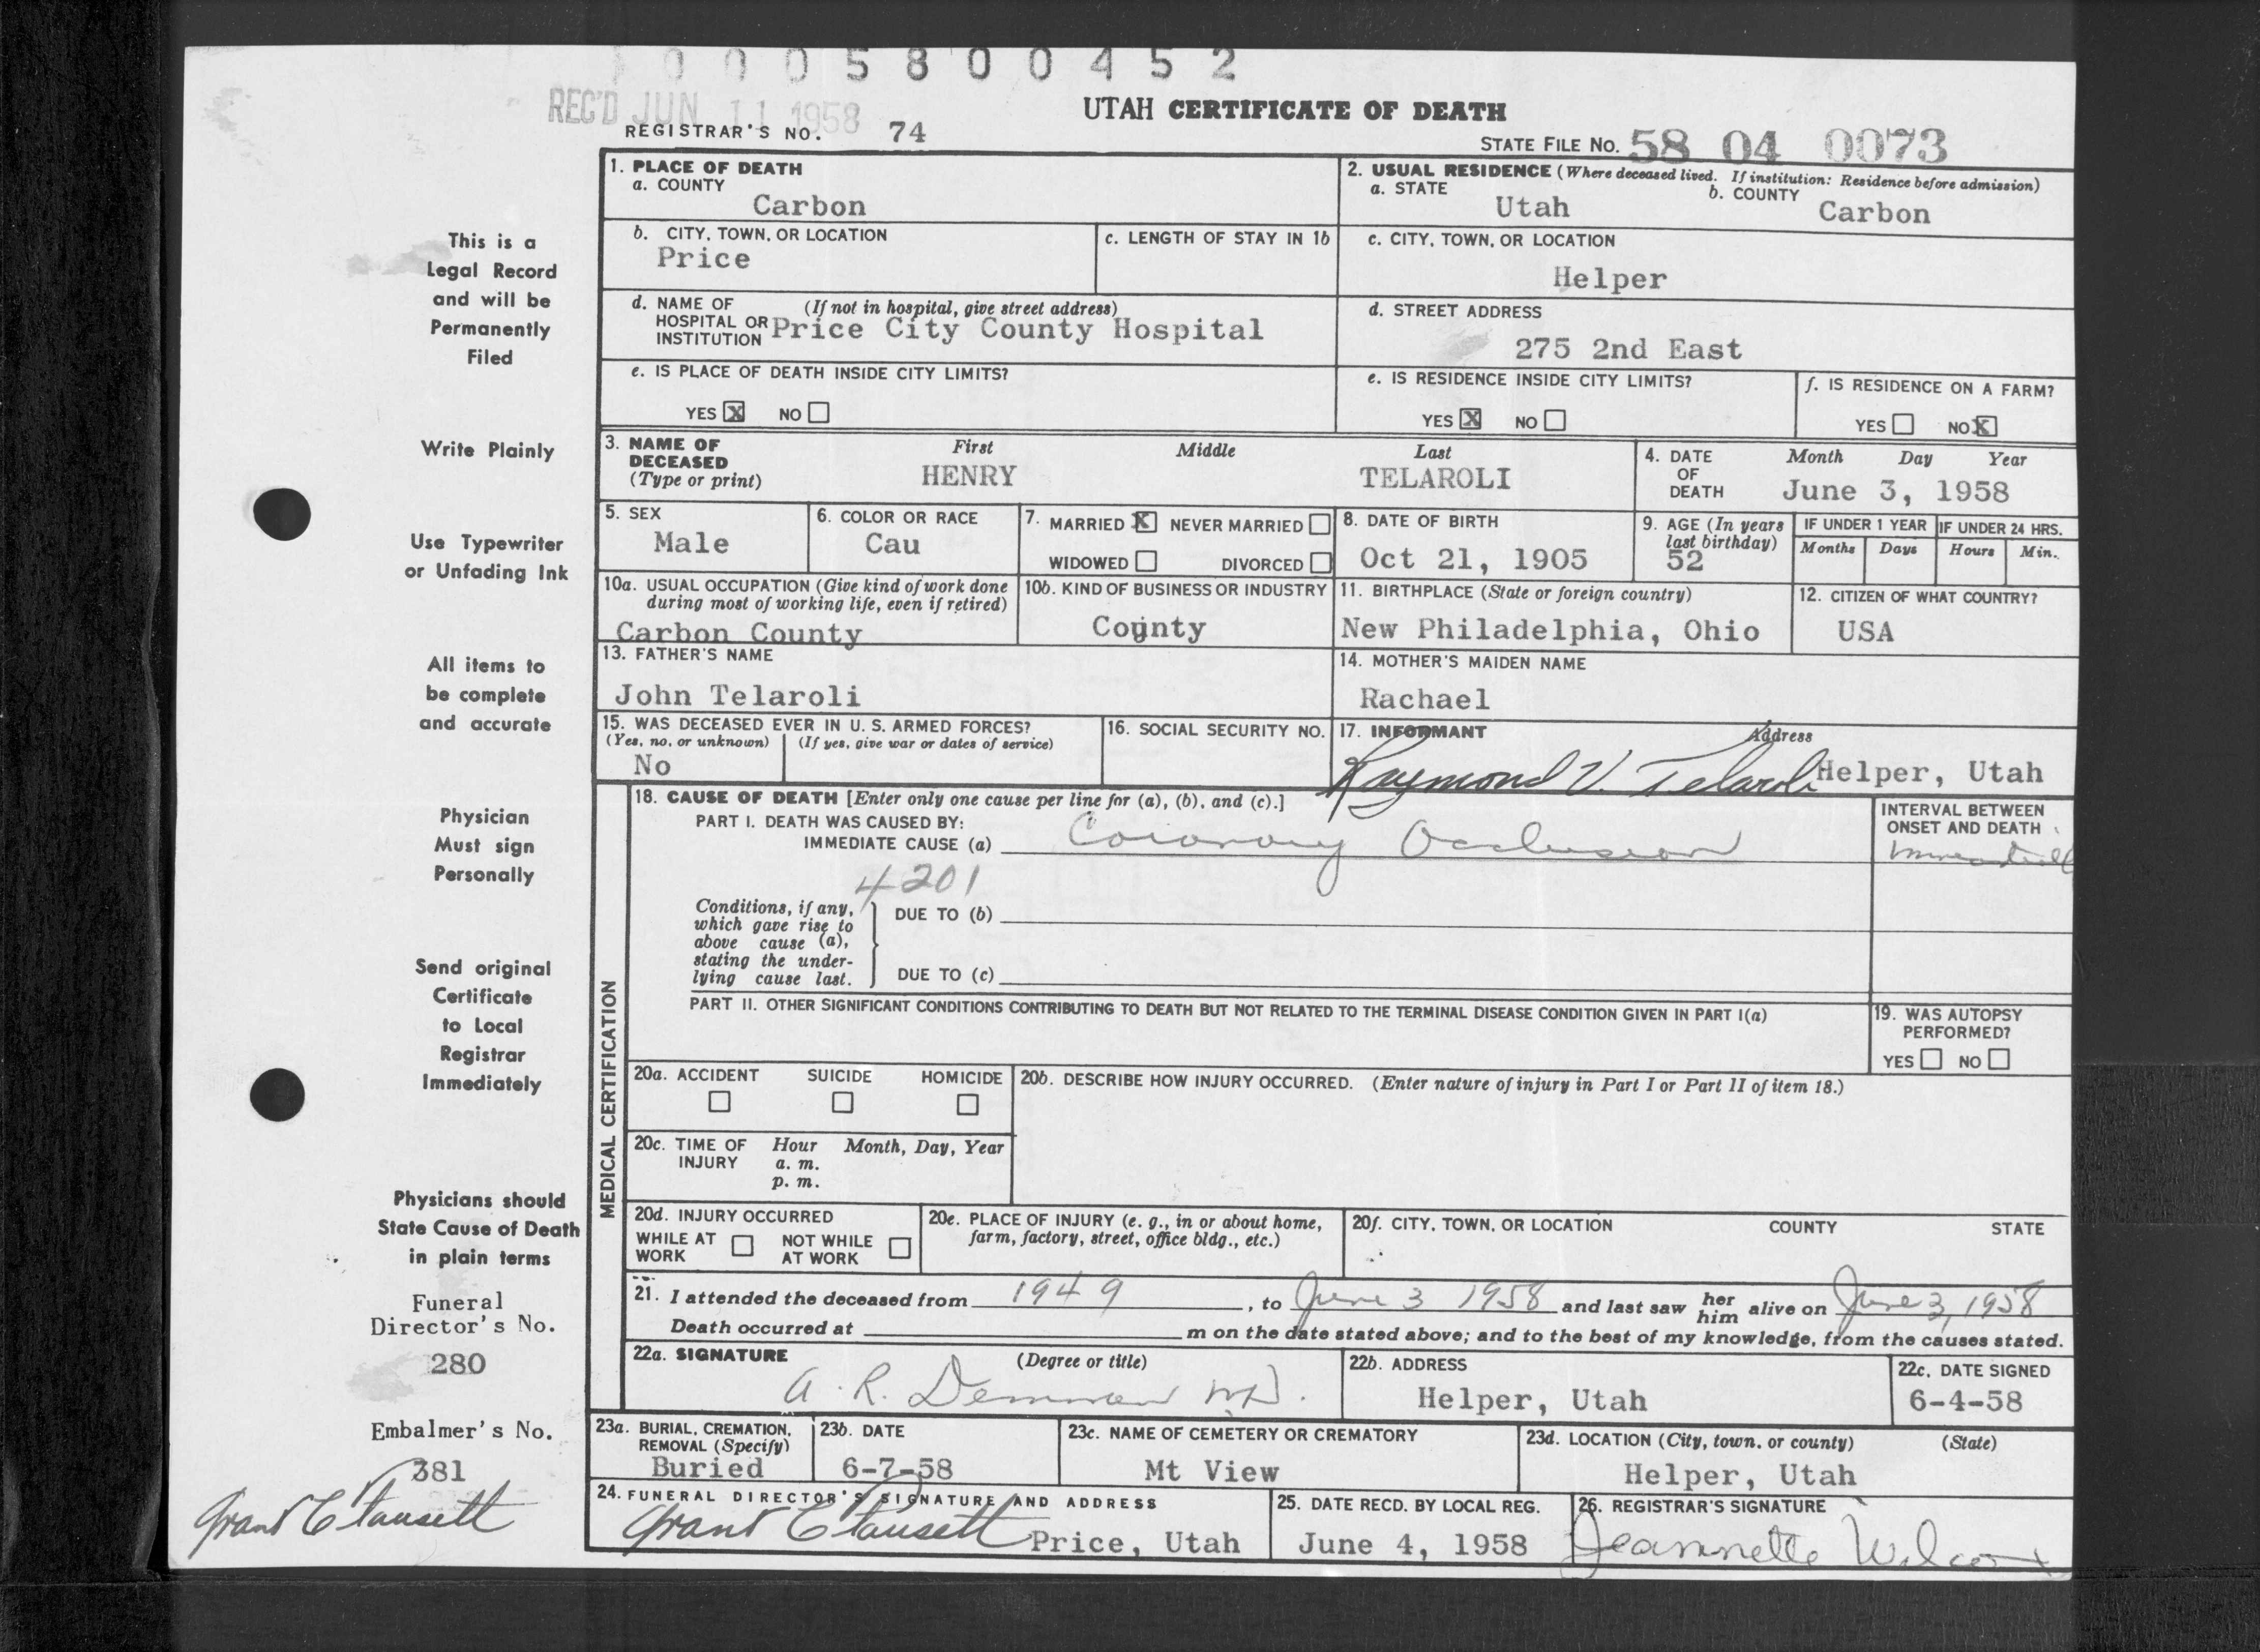 0 0 0 5 8 0 0 4 5 2
REC'D JUN 11 1958
UTAH CERTIFICATE OF DEATH
REGISTRAR'S NO. 74
STATE FILE No. 58 04 0073
This is a
Legal Record
and will be
Permanently
Filed
Write Plainly
Use Typewriter
or Unfading Ink
All items to
be complete
and accurate
Physician
Must sign
Personally
Send original
Certificate
to Local
Registrar
Immediately
Physicians should
State Cause of Death
in plain terms
Funeral
Director's No.
280
Embalmer's No.
381
Grant C Fausett
1. PLACE OF DEATH
a. COUNTY
Carbon
2. USUAL RESIDENCE (Where deceased lived. If institution: Residence before admission)
a. STATE Utah b. COUNTY Carbon
b. CITY, TOWN, OR LOCATION
Price
c. LENGTH OF STAY IN 1b
c. CITY, TOWN, OR LOCATION
Helper
d. NAME OF (If not in hospital, give street address)
HOSPITAL OR
INSTITUTION Price City County Hospital
d. STREET ADDRESS
275 2nd East
e. IS PLACE OF DEATH INSIDE CITY LIMITS?
YES X NO
e. IS RESIDENCE INSIDE CITY LIMITS?
YES X NO
f. IS RESIDENCE ON A FARM?
YES NO X
3. NAME OF
DECEASED
(Type or print)
First Middle Last
HENRY TELAROLI
4. DATE
OF
DEATH
Month Day Year
June 3, 1958
5. SEX
Male
6. COLOR OR RACE
Cau
7. MARRIED X NEVER MARRIED
WIDOWED DIVORCED
8. DATE OF BIRTH
Oct 21, 1905
9. AGE (In years
last birthday)
52
IF UNDER 1 YEAR IF UNDER 24 HRS.
Months Days Hours Min.
10a. USUAL OCCUPATION (Give kind of work done
during most of working life, even if retired)
Carbon County
10b. KIND OF BUSINESS OR INDUSTRY
County
11. BIRTHPLACE (State or foreign country)
New Philadelphia, Ohio
12. CITIZEN OF WHAT COUNTRY?
USA
13. FATHER'S NAME
John Telaroli
14. MOTHER'S MAIDEN NAME
Rachael
15. WAS DECEASED EVER IN U. S. ARMED FORCES?
(Yes, no, or unknown) (If yes, give war or dates of service)
No
16. SOCIAL SECURITY NO.
17. INFORMANT Address
Raymond V. Telaroli Helper, Utah
MEDICAL CERTIFICATION
18. CAUSE OF DEATH [Enter only one cause per line for (a), (b), and (c).]
PART I. DEATH WAS CAUSED BY:
IMMEDIATE CAUSE (a) Coronary Occlusion
INTERVAL BETWEEN
ONSET AND DEATH
4201
Conditions, if any,
which gave rise to
above cause (a),
stating the under-
lying cause last.
DUE TO (b)
DUE TO (c)
PART II. OTHER SIGNIFICANT CONDITIONS CONTRIBUTING TO DEATH BUT NOT RELATED TO THE TERMINAL DISEASE CONDITION GIVEN IN PART I(a)
19. WAS AUTOPSY
PERFORMED?
YES NO
20a. ACCIDENT SUICIDE HOMICIDE
20b. DESCRIBE HOW INJURY OCCURRED. (Enter nature of injury in Part I or Part II of item 18.)
20c. TIME OF
INJURY
Hour Month, Day, Year
a. m.
p. m.
20d. INJURY OCCURRED
WHILE AT
WORK
NOT WHILE
AT WORK
20e. PLACE OF INJURY (e. g., in or about home,
farm, factory, street, office bldg., etc.)
20f. CITY, TOWN, OR LOCATION COUNTY STATE
21. I attended the deceased from 1949, to June 3 1958 and last saw her him alive on June 3, 1958
Death occurred at m on the date stated above; and to the best of my knowledge, from the causes stated.
22a. SIGNATURE (Degree or title)
A. R. Demman M.D.
22b. ADDRESS
Helper, Utah
22c. DATE SIGNED
6-4-58
23a. BURIAL, CREMATION,
REMOVAL (Specify)
Buried
23b. DATE
6-7-58
23c. NAME OF CEMETERY OR CREMATORY
Mt View
23d. LOCATION (City, town, or county) (State)
Helper, Utah
24. FUNERAL DIRECTOR'S SIGNATURE AND ADDRESS
Grant C Fausett Price, Utah
25. DATE RECD. BY LOCAL REG.
June 4, 1958
26. REGISTRAR'S SIGNATURE
Jeannette Wilcox